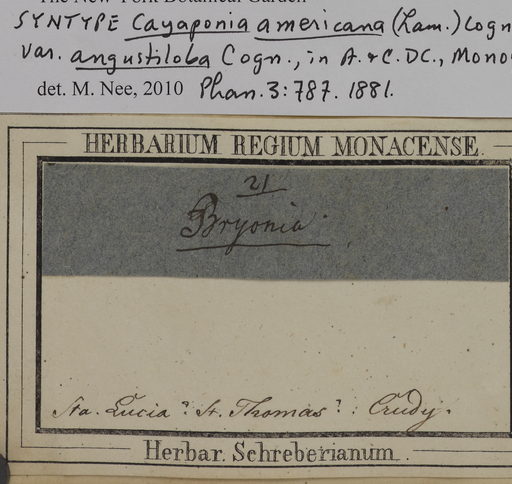 The New York Botanical Garden
SYNTYPE Cayaponia americana (Lam.) Cogn
var. angustiloba Cogn., in A. & C. DC., Mono
det. M. Nee, 2010 Phan. 3: 787. 1881.
HERBARIUM REGIUM MONACENSE.
21
Bryonia.
Sta. Lucia? St. Thomas?: Crudy.
Herbar. Schreberianum.